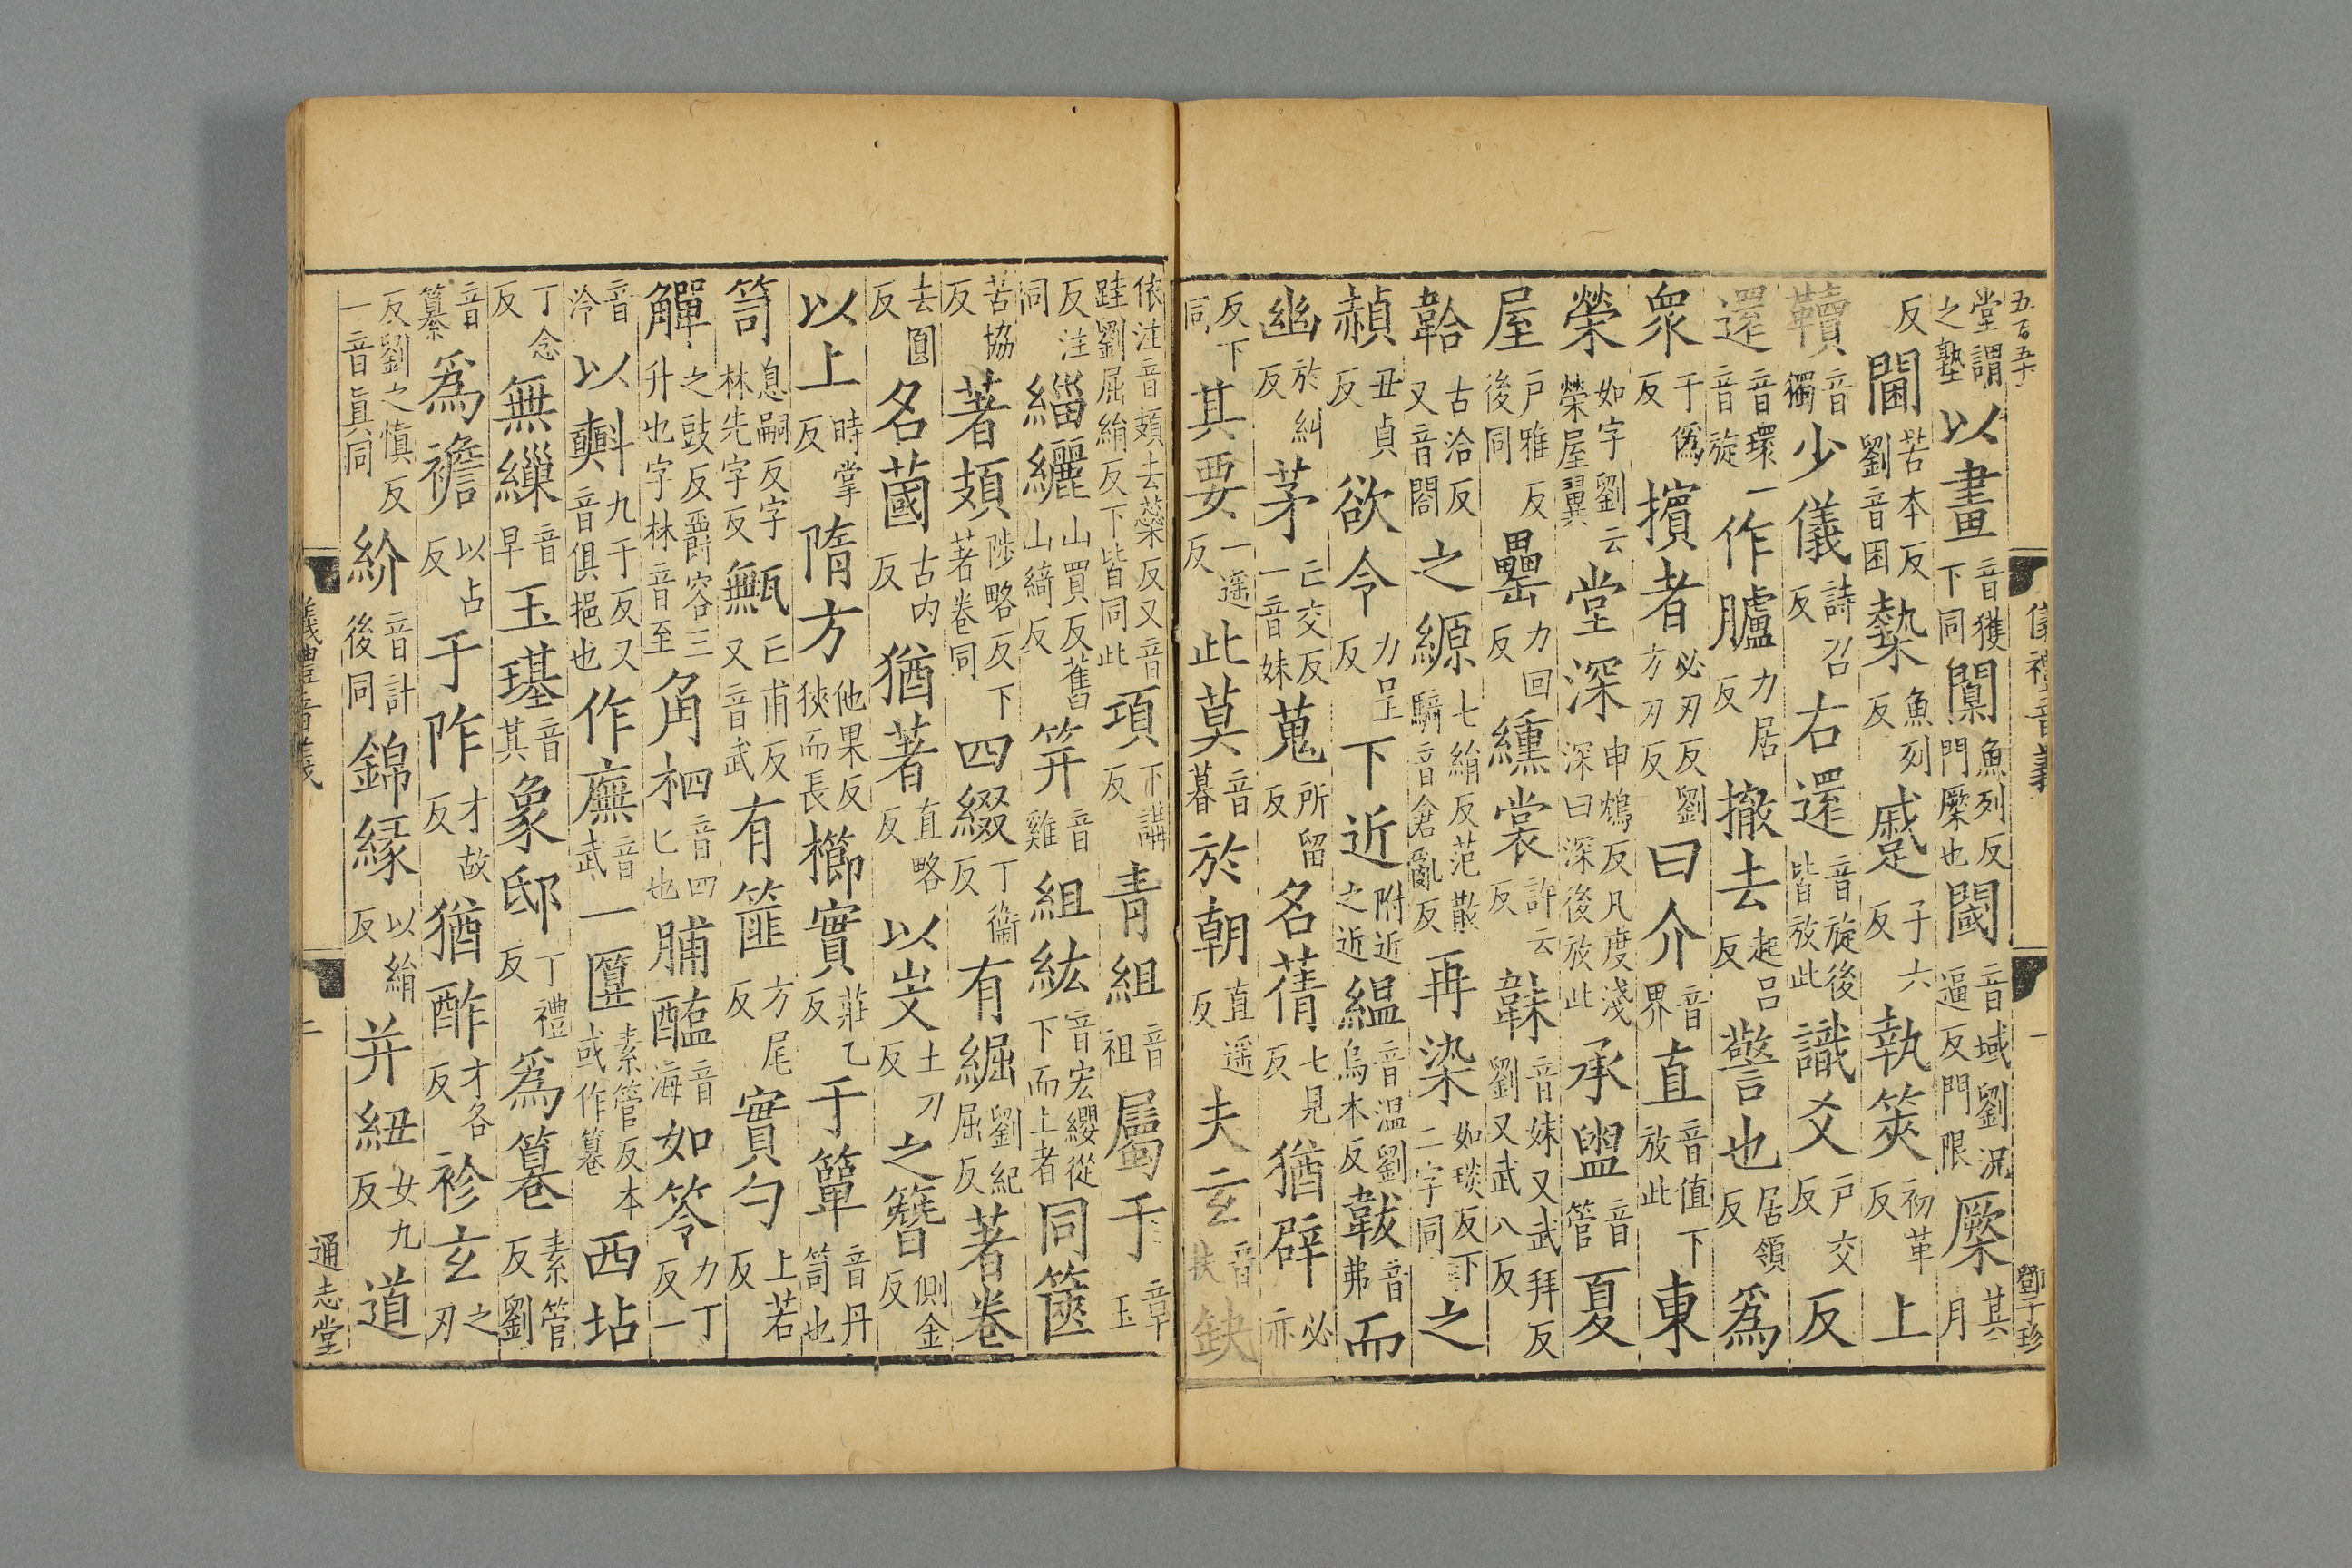 五百五十 儀禮音義 一 鄧子珍
堂謂之塾以畫音獲下同闑魚列反門橜也閾音域劉況逼反門限橜其月
反閫苦本反劉音困槷魚列反蹙子六反執筴初革反上
韇音獨少儀詩召反右還音旋後皆放此識爻戶交反反
還音環一音旋作臚力居反撤去起呂反警也居領反為
衆于偽反擯者必刃反劉方刃反曰介音界直音值下放此東
榮如字劉云榮屋翼堂深申鴆反凡度淺深曰深後放此承盥音管夏
屋戶雅反後同罍力回反纁裳許云反韎音妹又武拜反劉又武八反
韐古洽反又音閤之縓七絹反范散騎音倉亂反再染如琰反下二字同之
赬丑貞反欲令力呈反下近附近之近縕音温劉烏本反韍音弗而
幽於糾反茅亡交反一音妹蒐所留反名蒨七見反猶辟必亦
反下同其要一遥反此莫音暮於朝直遥反夫玄音扶缺
依注音頍去蘂反又音跬劉屈絹反下皆同此項下講反青組音祖屬于章玉
反注同緇纚山買反舊山綺反笄音雞組紘音宏纓從下而上者同篋
苦協反著頍陟略反下著卷同四綴丁衞反有䋿劉紀屈反著卷
去圓反名蔮古内反猶著直略反以㞢土刀反之簪側金反
以上時掌反隋方他果反狹而長櫛實莊乙反于簞音丹笥也
笥息嗣反字林先字反甒亡甫反又音武有篚方尾反實勺上若反
觶之豉反爵容三升也字林音至角柶音四匕也脯醢音海如笭力丁反一
音泠以㪺九于反又音俱挹也作廡音武一匴素管反本或作篹西坫
丁念反無繅音早玉璂音其象邸丁禮反為篹素管反劉
音纂為襜以占反于阼才故反猶酢才各反袗玄之刃
反劉之慎反一音真同紒音計後同錦緣以絹反并紐女九反道
儀禮音義 二 通志堂